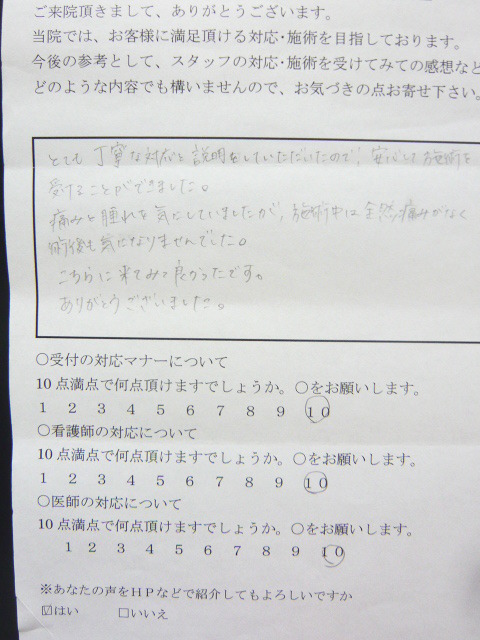 ご来院頂きまして、ありがとうございます。
当院では、お客様に満足頂ける対応・施術を目指しております。
今後の参考として、スタッフの対応・施術を受けてみての感想など
どのような内容でも構いませんので、お気づきの点お寄せ下さい。
とても丁寧な対応と説明をしていただいたので、安心して施術を
受けることができました。
痛みと腫れを気にしていましたが、施術中は全然痛みがなく
術後も気になりませんでした。
こちらに来てみて良かったです。
ありがとうございました。
○受付の対応マナーについて
10点満点で何点頂けますでしょうか。○をお願いします。
1 2 3 4 5 6 7 8 9 10
○看護師の対応について
10点満点で何点頂けますでしょうか。○をお願いします。
1 2 3 4 5 6 7 8 9 10
○医師の対応について
10点満点で何点頂けますでしょうか。○をお願いします。
1 2 3 4 5 6 7 8 9 10
※あなたの声をＨＰなどで紹介してもよろしいですか
☑はい □いいえ